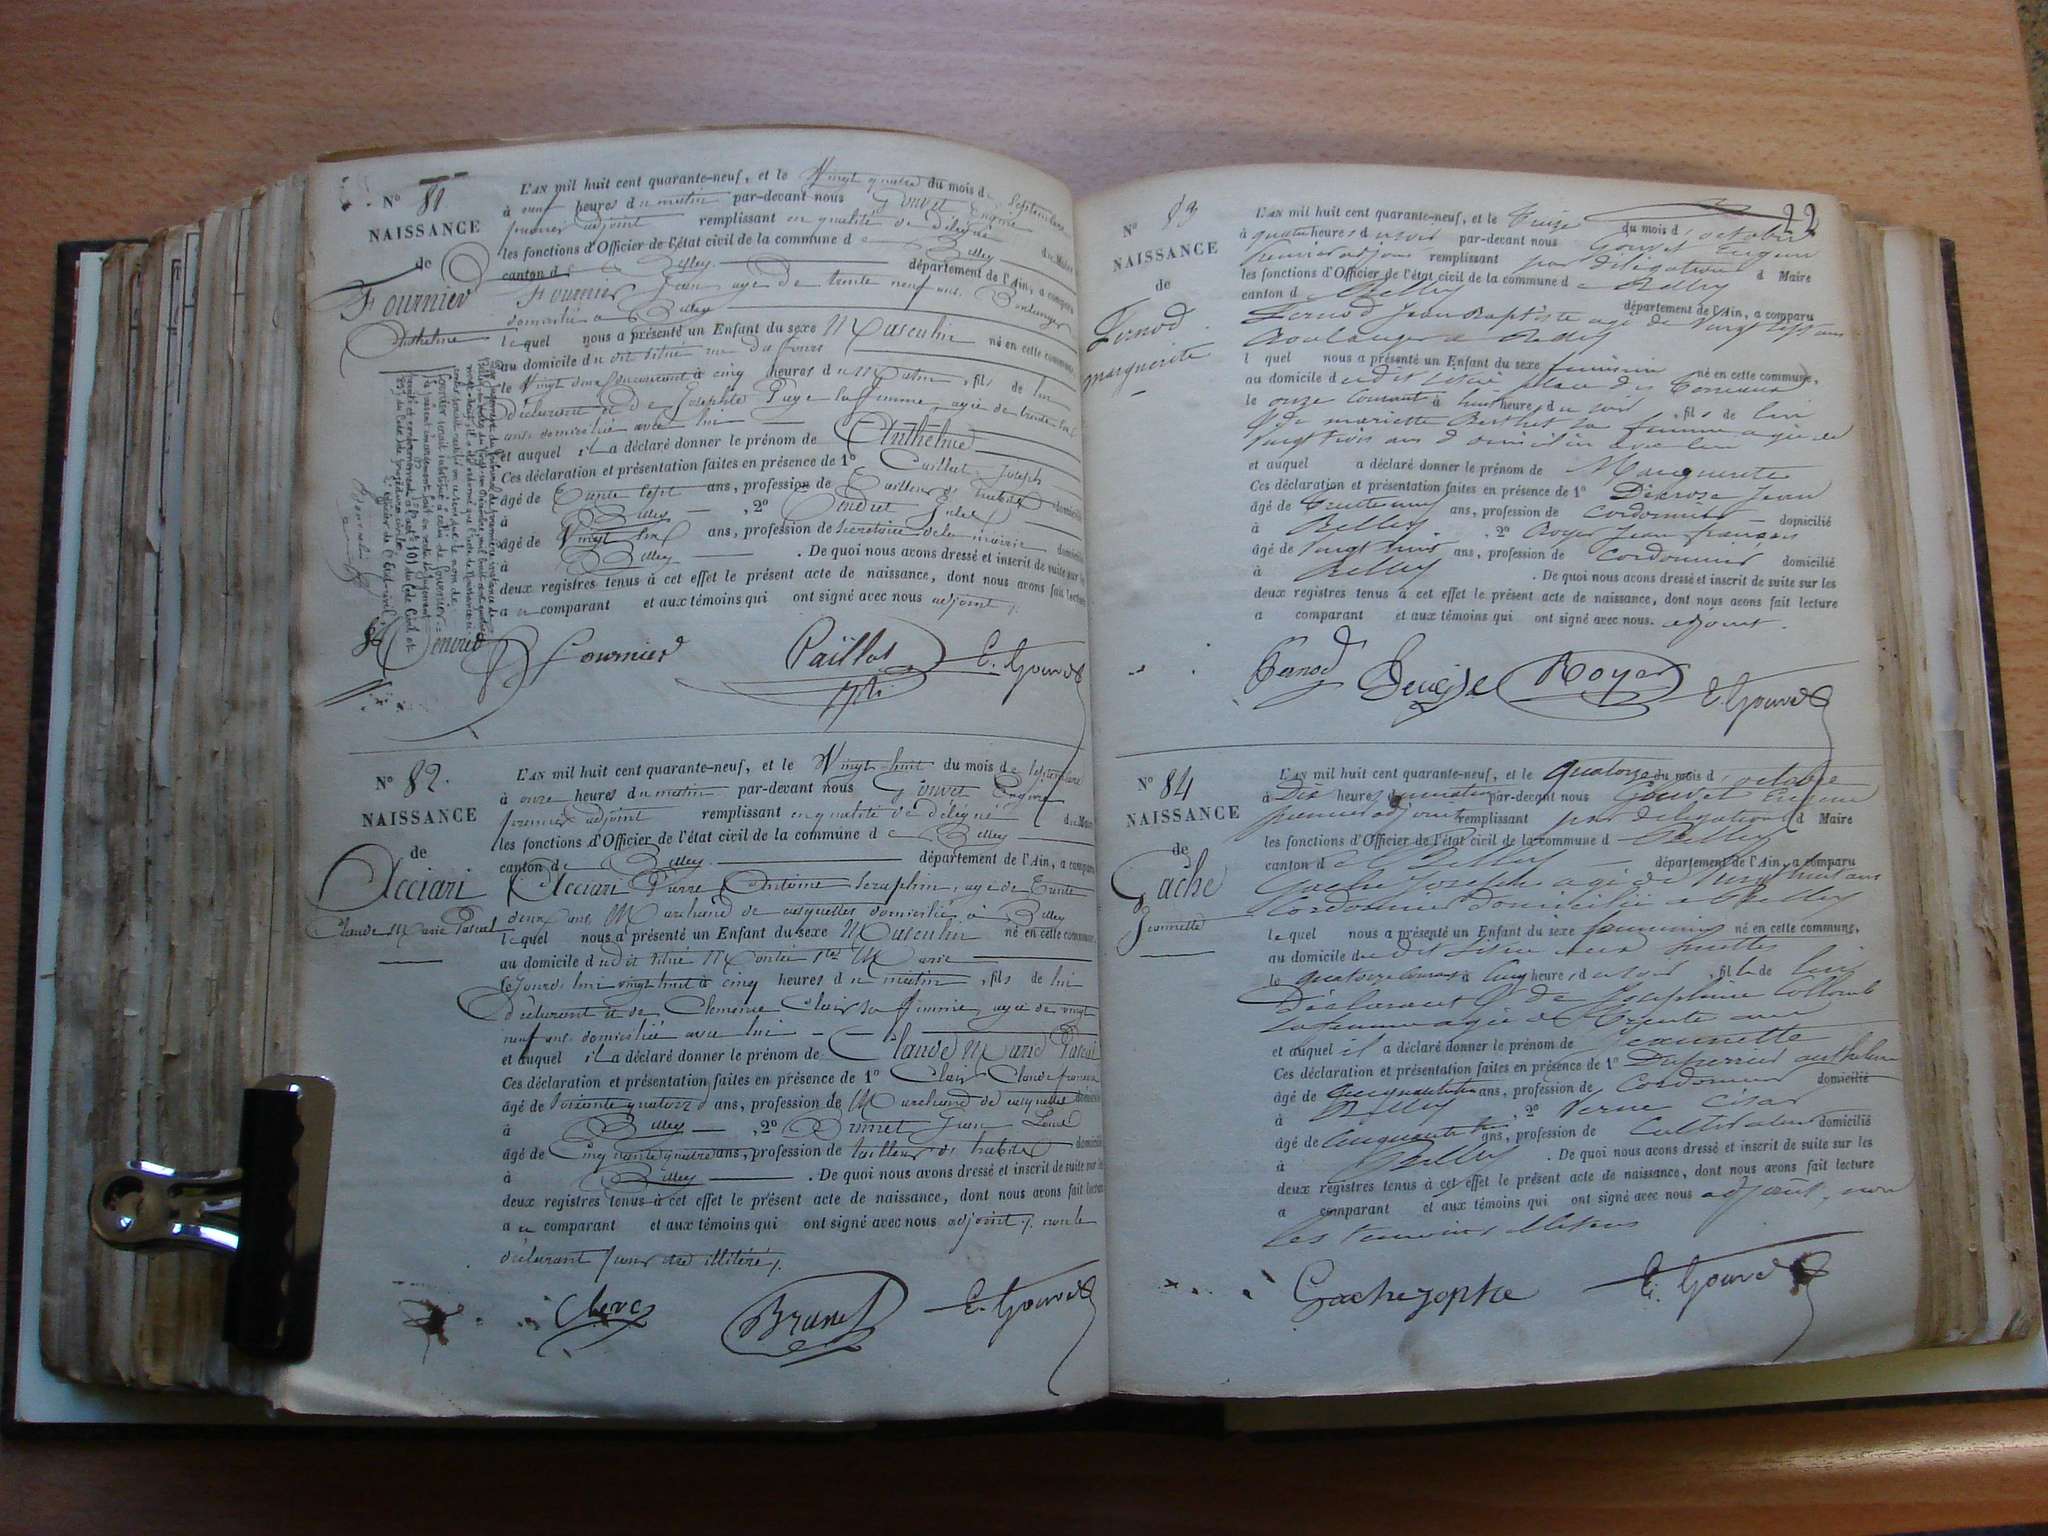 N° 81
NAISSANCE
de
Fournier
Anthelme
L'AN mil huit cent quarante-neuf, et le Vingt quatre du mois de Septembre
à neuf heures du matin par-devant nous Gouvet Eugène
premier adjoint remplissant en qualité de délégué du Maire
les fonctions d'Officier de l'état civil de la commune de Belley
canton de Belley département de l'Ain, a comparu
Fournier Jean agé de trente neuf ans, Boulanger
domicilié à Belley
lequel nous a présenté un Enfant du sexe Masculin né en cette commune
au domicile du dit situé rue du four
le Vingt deux du courant à cinq heures du Matin, fils de lui
déclarant et de Josephte Puge sa femme, agée de trente six
ans domiciliée avec lui
et auquel il a déclaré donner le prénom de Anthelme
Ces déclaration et présentation faites en présence de 1° Joseph
âgé de Trente sept ans, profession de Tailleur d'habits domicilié
à Belley, 2° Jules
âgé de Vingt six ans, profession de Secrétaire de la mairie domicilié
à Belley. De quoi nous avons dressé et inscrit de suite sur les
deux registres tenus à cet effet le présent acte de naissance, dont nous avons fait lecture
au comparant et aux témoins qui ont signé avec nous adjoint /.
Fournier Paillot E. Gouvet
N° 82.
NAISSANCE
de
Acciari
Claude Marie Pascal
L'AN mil huit cent quarante-neuf, et le Vingt huit du mois de Septembre
à onze heures du matin par-devant nous Gouvet Eugène
premier adjoint remplissant en qualité de délégué du Maire
les fonctions d'Officier de l'état civil de la commune de Belley
canton de Belley département de l'Ain, a comparu
Acciari Pierre Antoine Seraphin, agé de Trente
deux ans, Marchand de casquettes domicilié à Belley
lequel nous a présenté un Enfant du sexe Masculin né en cette commune
au domicile du dit situé Montée Ste Marie
Cejourd'hui vingt huit à cinq heures du matin, fils de lui
déclarant et de Clémence Clair sa femme, agée de vingt
neuf ans domiciliée avec lui
et auquel il a déclaré donner le prénom de Claude Marie Pascal
Ces déclaration et présentation faites en présence de 1° Clair Claude françois
âgé de soixante quatorze ans, profession de Marchand de casquettes domicilié
à Belley, 2° Brunet Jean Louis
âgé de Cinquante quatre ans, profession de tailleur d'habits domicilié
à Belley. De quoi nous avons dressé et inscrit de suite sur les
deux registres tenus à cet effet le présent acte de naissance, dont nous avons fait lecture
au comparant et aux témoins qui ont signé avec nous adjoint /. non le
déclarant pour être illitéré /.
Brunet E. Gouvet
22
N° 83
NAISSANCE
de
Fernod
Marguerite
L'AN mil huit cent quarante-neuf, et le treize du mois d'octobre
à quatre heures du soir par-devant nous Gouvet Eugène
premier adjoint remplissant par délégation d Maire
les fonctions d'Officier de l'état civil de la commune de Belley
canton d Belley département de l'Ain, a comparu
Fernod Jean Baptiste agé de vingt sept ans
Boulanger à Belley
l quel nous a présenté un Enfant du sexe feminin né en cette commune,
au domicile du dit situé place des Terreaux
le onze courant à huit heures du soir, fils de lui
& de mariette Berthet sa femme agée de
vingt trois ans domiciliée avec lui
et auquel a déclaré donner le prénom de Marguerite
Ces déclaration et présentation faites en présence de 1° Jean
âgé de trente neuf ans, profession de Cordonnier domicilié
à Belley, 2° Royer Jean françois
âgé de vingt huit ans, profession de Cordonnier domicilié
à Belley. De quoi nous avons dressé et inscrit de suite sur les
deux registres tenus à cet effet le présent acte de naissance, dont nous avons fait lecture
a comparant et aux témoins qui ont signé avec nous. adjoint.
Fernod Royer E. Gouvet
N° 84
NAISSANCE
de
Gache
Jeannette
L'AN mil huit cent quarante-neuf, et le quatorze du mois d'octobre
à Dix heures du matin par-devant nous Gouvet Eugène
premier adjoint remplissant par délégation d Maire
les fonctions d'Officier de l'état civil de la commune d Belley
canton de Belley département de l'Ain, a comparu
Gache Joseph agé de vingt huit ans
Cordonnier domicilié à Belley
lequel nous a présenté un Enfant du sexe feminin né en cette commune,
au domicile du dit situé
le quatorze courant à cinq heures du, fille de lui
Déclarant & de Josephine Collomb
sa femme agée de Trente ans
et auquel il a déclaré donner le prénom de Jeannette
Ces déclaration et présentation faites en présence de 1° Duperrier anthelme
âgé de ans, profession de Cordonnier domicilié
à Belley, 2° Verne César
âgé de Cinquante ans, profession de Cultivateur domicilié
à Belley. De quoi nous avons dressé et inscrit de suite sur les
deux registres tenus à cet effet le présent acte de naissance, dont nous avons fait lecture
a comparant et aux témoins qui ont signé avec nous adjoint, non
les temoins illiterés
Gache Jophse E. Gouvet